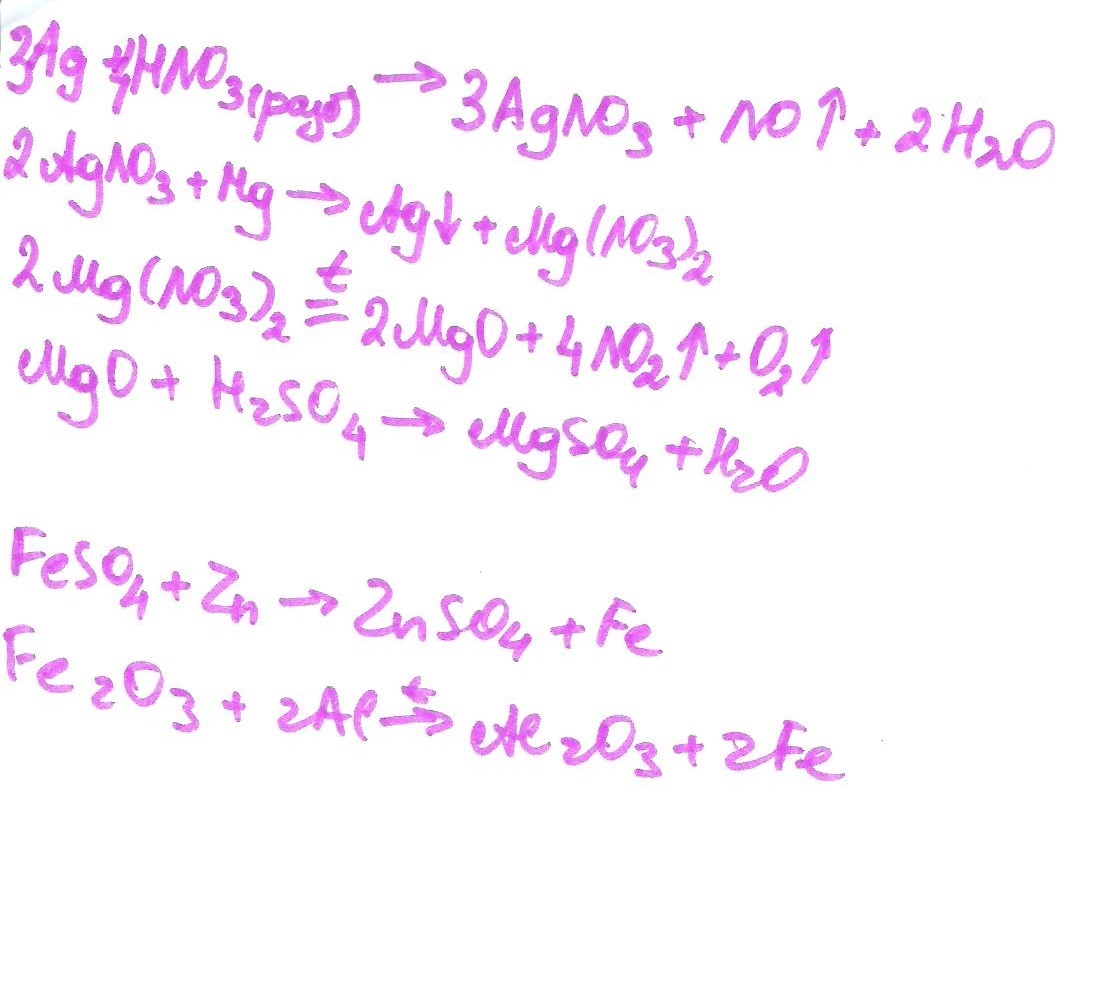 3Ag + 4HNO₃(разб) → 3AgNO₃ + NO↑ + 2H₂O
2AgNO₃ + Mg → Ag↓ + Mg(NO₃)₂
2Mg(NO₃)₂ =ᵗ 2MgO + 4NO₂↑ + O₂↑
MgO + H₂SO₄ → MgSO₄ + H₂O
FeSO₄ + Zn → ZnSO₄ + Fe
Fe₂O₃ + 2Al →ᵗ Al₂O₃ + 2Fe